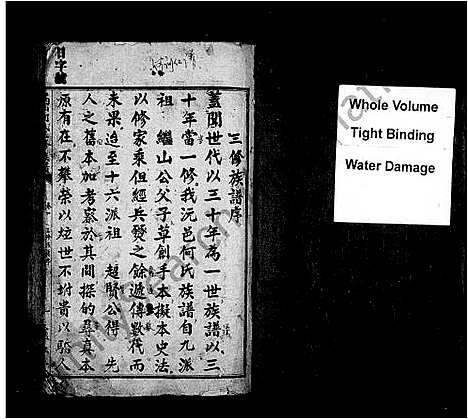 三修族譜序
蓋聞世代以三十年為一世族譜以三
十年當一修我沅邑何氏族譜自九派
祖 繼山公父子草創手本擬本史法
以修家乘但經兵燹之餘遞傳數代而
未果迨至十六派祖 超賢公得 先
人之舊本加考察於其間探的尋真本
原有在不攀榮以炫世不坿貴以驕人
Whole Volume
Tight Binding
Water Damage